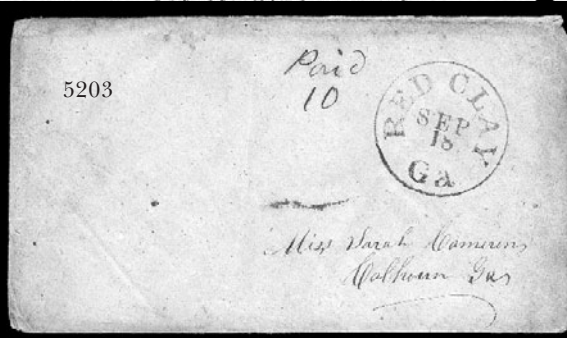 Paid
10
5203
RED CLAY
SEP
18
Ga
Miss Sarah Cameron
Calhoun Ga